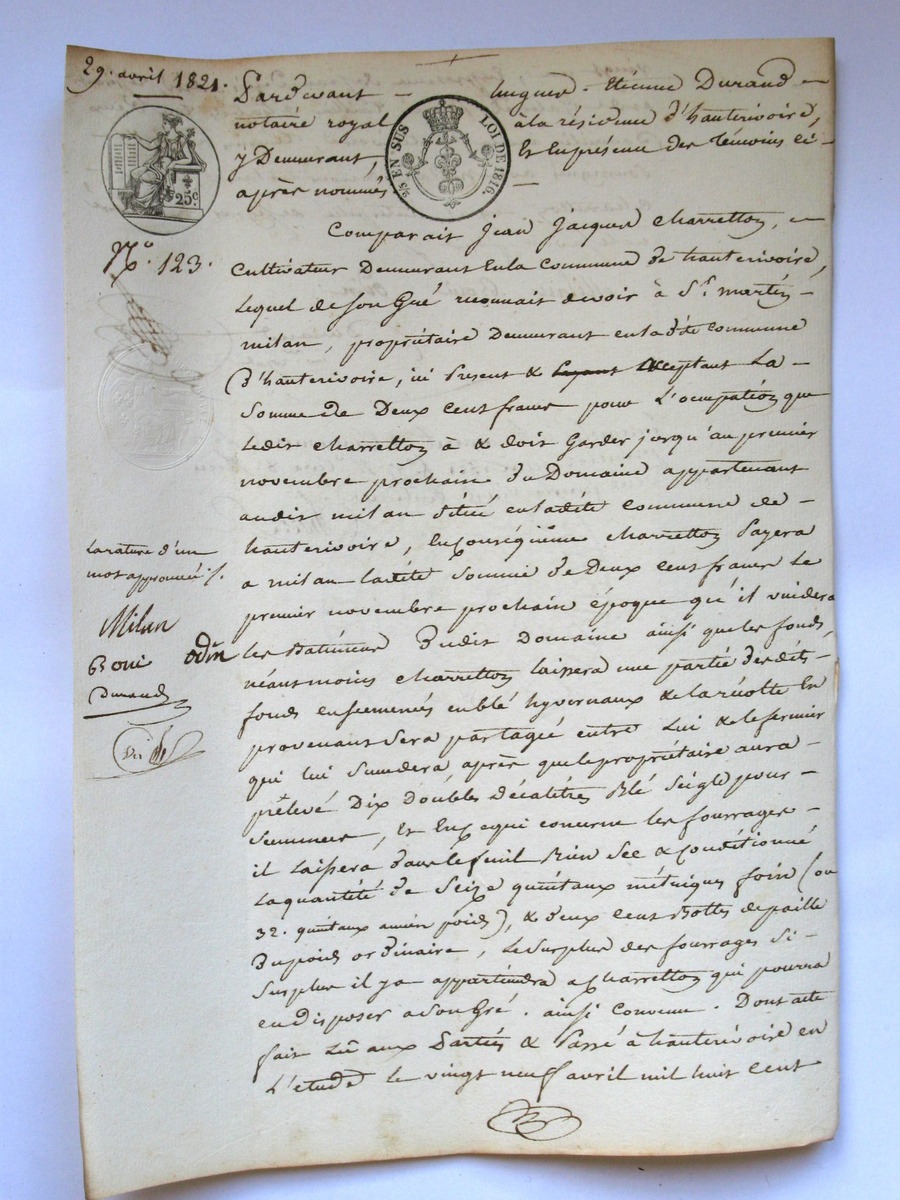 29. avril 1821.
Pardevant hugues - Etienne Durand -
notaire royal à la résidence d'hauterivoire,
y Demeurant, Et En présence des Témoins ci-
après nommés -
25c
2/5 EN SUS LOI DE 1816.
N.o 123.
Comparait Jean Jacques Charretton,
Cultivateur Demeurant En la Commune de hauterivoire,
lequel de son Gré reconnait devoir à Sr. martin
milan, propriétaire Demeurant en ladite commune
D'hauterivoire, ici Présent & acceptant La
Somme de Deux cent francs pour L'ocupation que
Ledit Charretton à & doit Garder jusqu'au premier
novembre prochain du Domaine appartenant
audit milan située en ladite commune de -
hauterivoire, En Conséquence Charretton Payera
a milan ladite Somme de Deux cent francs Le
premier novembre prochain époque qu'il vuidera
les Batimens Dudit Domaine ainsi que les fonds,
néanmoins Charretton laissera une partie desdits
fonds ensemencés en blé hyvernaux & la récolte En
provenans Sera partagée entre Lui & le fermier
qui lui Succdera après que le propriétaire aura -
prélevé Dix doubles Décalitres Blé Seigle pour -
Semences, Et En ce qui concerne les fourrages -
il Laissera dans le fenil Bien Sec & Conditionné
La quantité de Seize quintaux métriques foin (ou
32. quintaux ancien poids), & deux cent Bottes de paille
Du poids ordinaire, Le Surplus des fourrages Si -
Surplus il y a appartiendra a Charretton qui pourra
en Disposer a Son Gré. ainsi Convenu. Dont acte
fait Lu aux Parties & Passé à hauterivoire en
L'etude le vingt neuf avril mil huit cent
La rature d'un
mot approuvée /.
Milan
Boni odin
Durand